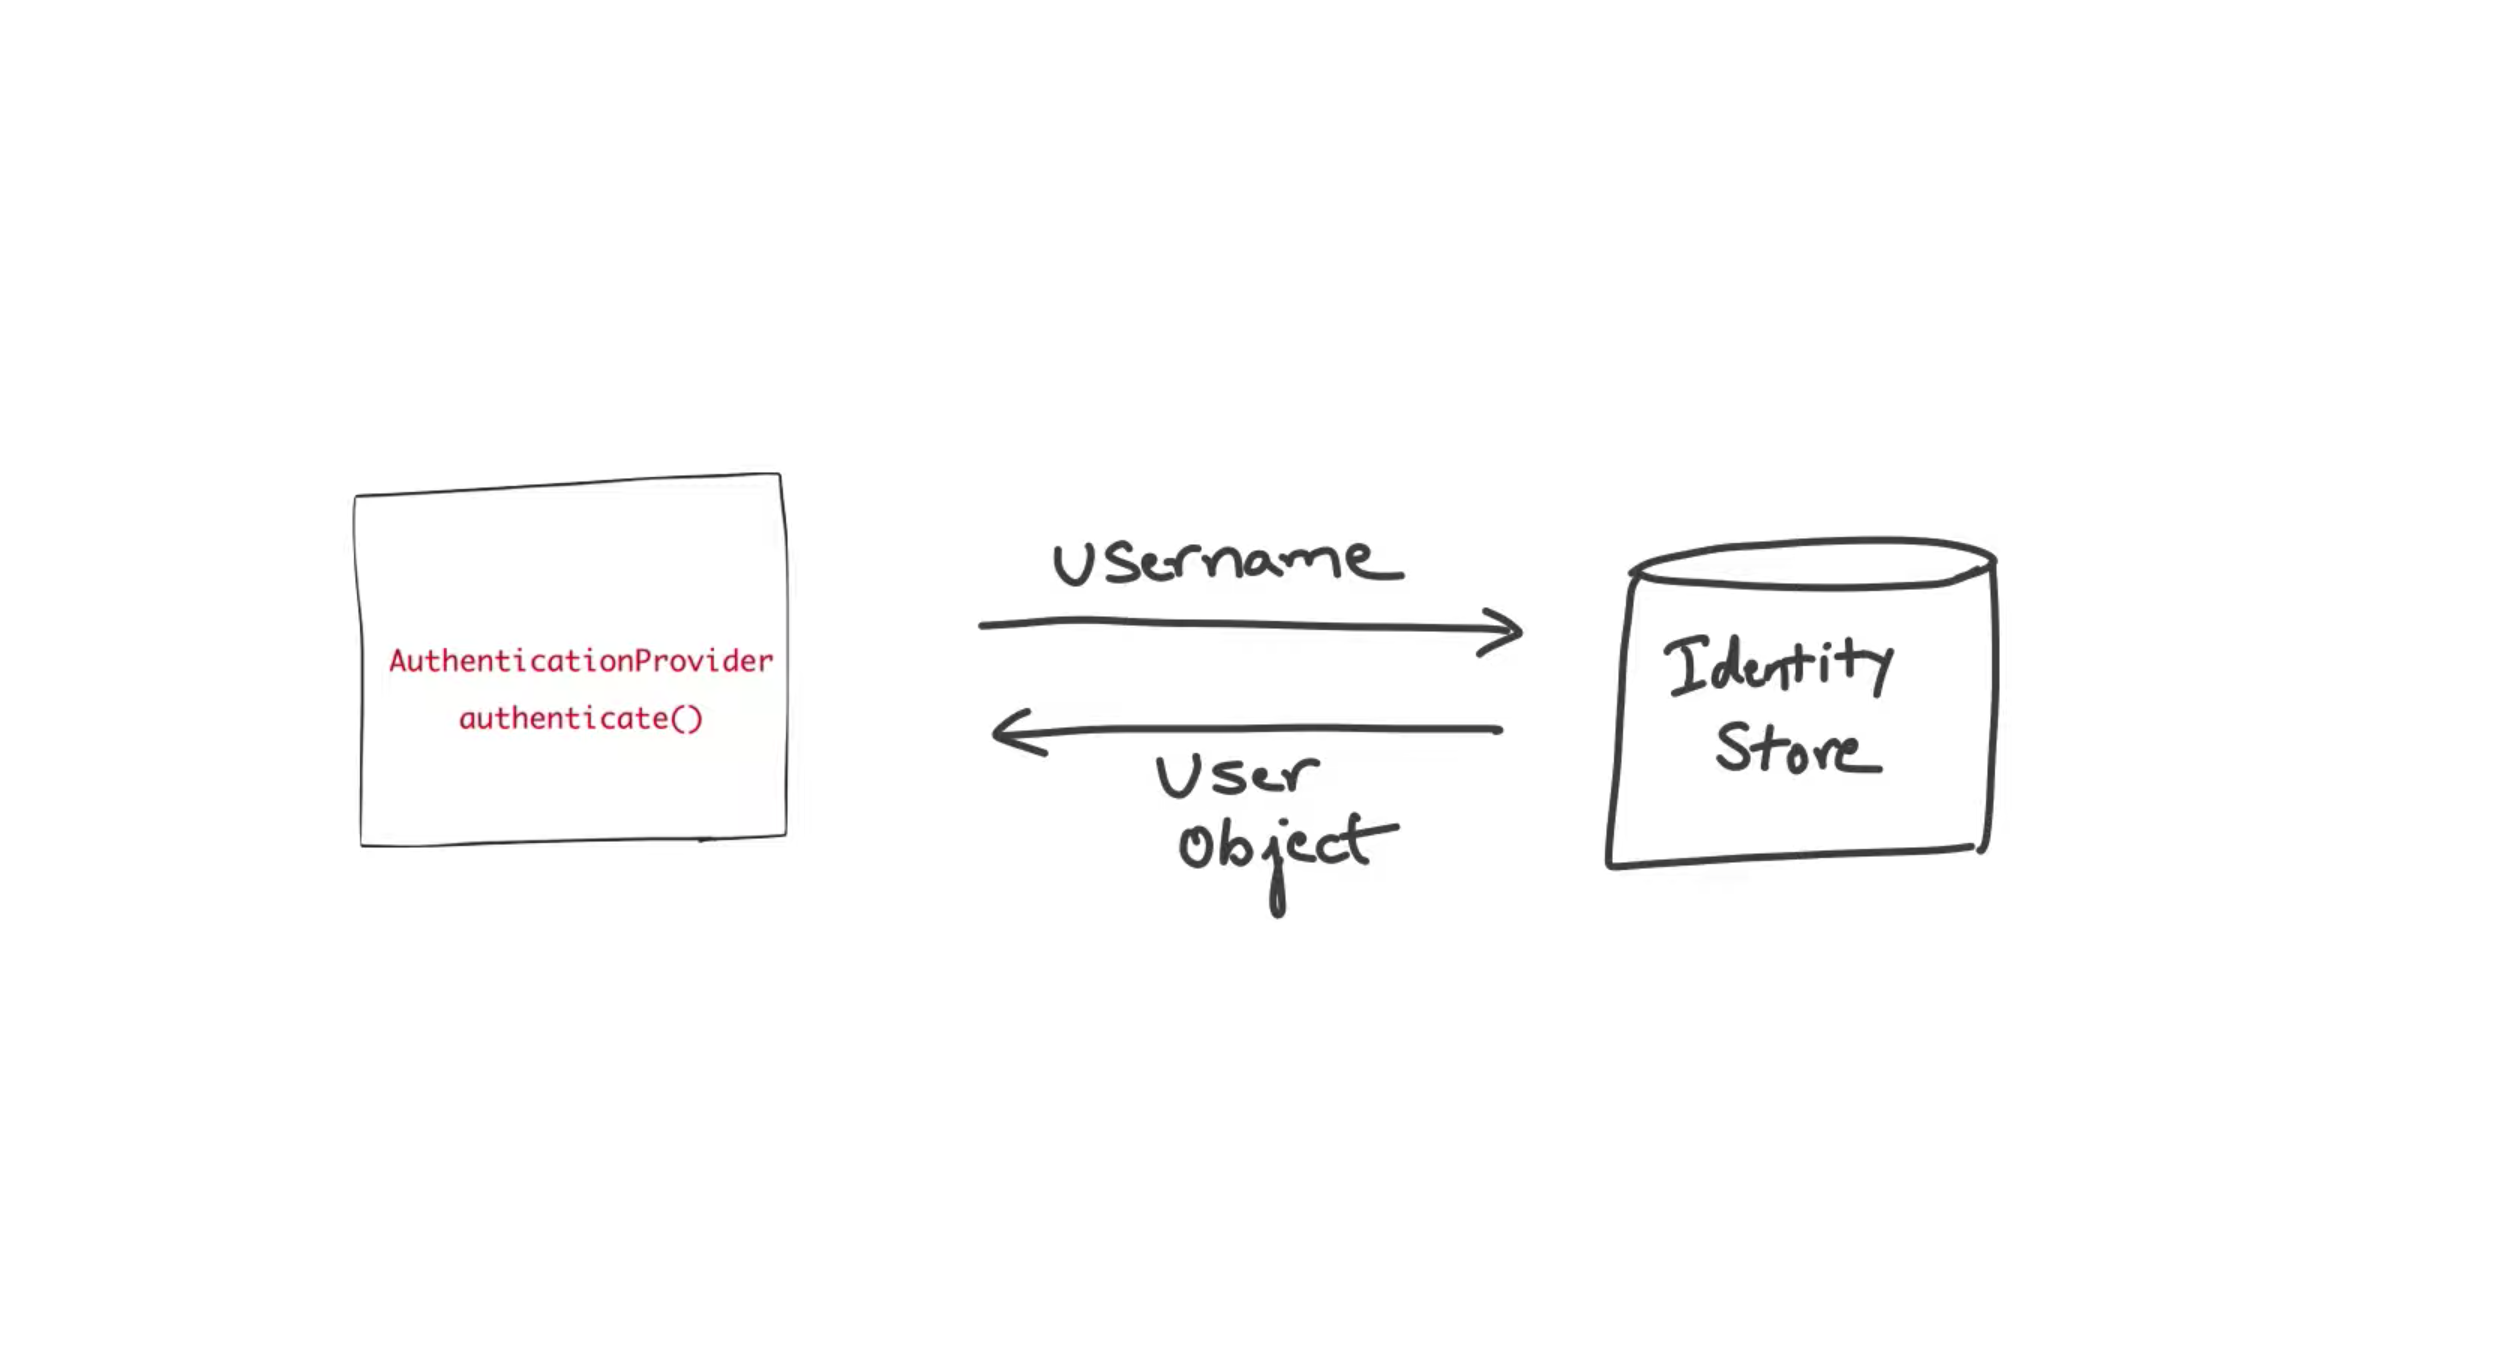 AuthenticationProvider
authenticate()
Username
User
Object
Identity
Store